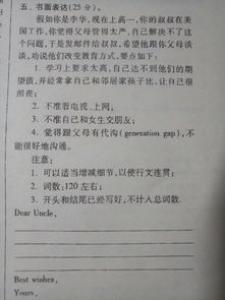 五、书面表达(25分)。
假如你是李华，现在上高一，你的叔叔在美
国工作，你觉得父母管得太严，自己解决不了这
个问题，于是发邮件给叔叔，希望他跟你父母谈
谈，劝说他们改变教育方式，要点如下：
1. 学习上要求太高，自己达不到他们的期
望值，并经常拿自己和邻居家孩子比，让自己很
烦恼；
2. 不准看电视、上网；
3. 不准自己和女生交朋友；
4. 觉得跟父母有代沟(generation gap)，不
能很好地沟通。
注意：
1. 可以适当增减细节，以使行文连贯；
2. 词数：120左右；
3. 开头和结尾已经写好，不计入总词数。
Dear Uncle,
Best wishes,
Yours,